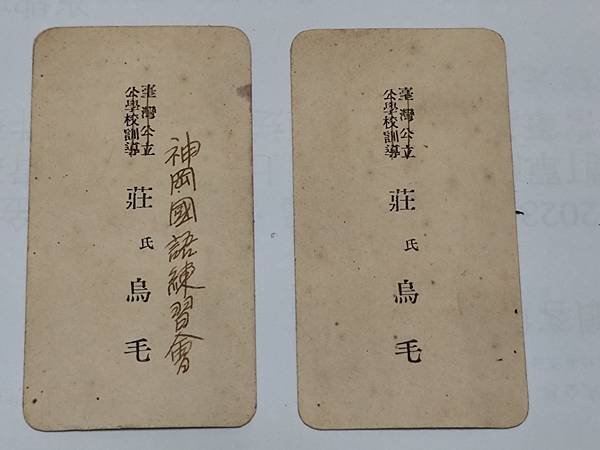 神岡國語練習會
臺灣公立
公學校訓導
莊氏烏毛
臺灣公立
公學校訓導
莊氏烏毛